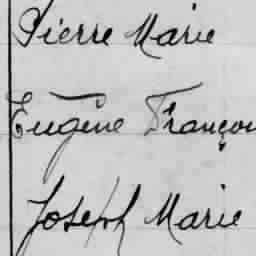 Pierre Marie
Eugène Françou
Joseph Marie